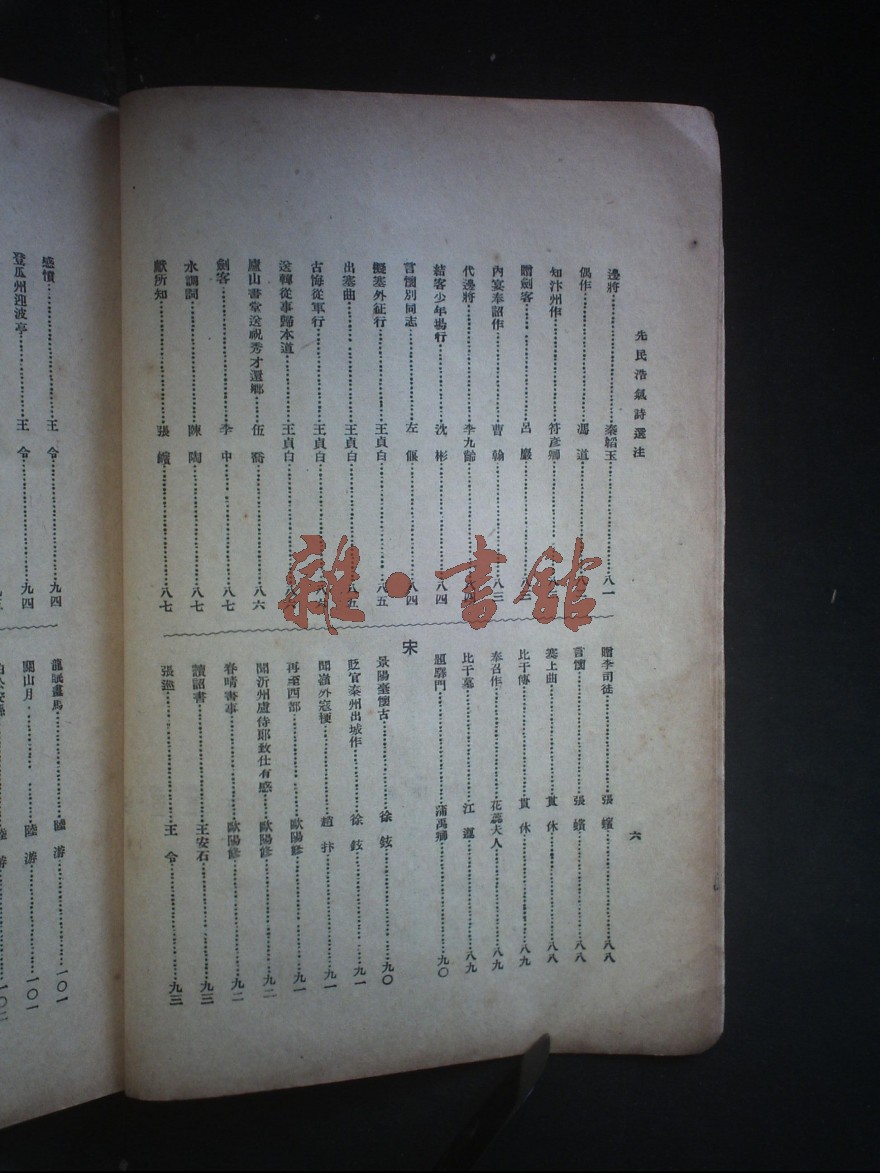 先民浩氣詩選注
六
邊將……秦韜玉……八一
偶作……馮道……八
知汴州作……符彥卿……八
贈劍客……呂巖……八三
內宴奉詔作……曹翰……八三
代邊將……李九齡……八四
結客少年場行……沈彬……八四
言懷別同志……左偃……八四
擬塞外征行……王貞白……八五
出塞曲……王貞白……八五
古悔從軍行……王貞白
送韓從事歸本道……王貞白……八六
廬山書堂送祝秀才還鄉……伍喬……八六
劍客……李中……八七
水調詞……陳陶……八七
獻所知……張蠙……八七
贈李司徒……張蠙……八八
言懷……張蠙……八八
塞上曲……貫休……八八
比干傳……貫休……八九
奉召作……花蕊夫人……八九
比干墓……江為……八九
題驛門……蒲禹卿……九〇
宋
景陽臺懷古……徐鉉……九〇
貶官秦州出城作……徐鉉……九一
聞嶺外寇梗……趙抃……九一
再至西都……歐陽修……九一
聞沂州盧侍郎致仕有感……歐陽修……九二
春晴書事……歐陽修……九二
讀詔書……王安石……九三
張巡……王令……九三
感憤……王令……九四
登瓜州迎波亭……王令……九四
龍眠畫馬……陸游……一〇一
關山月……陸游……一〇一
陸游……一〇二
雜·書館